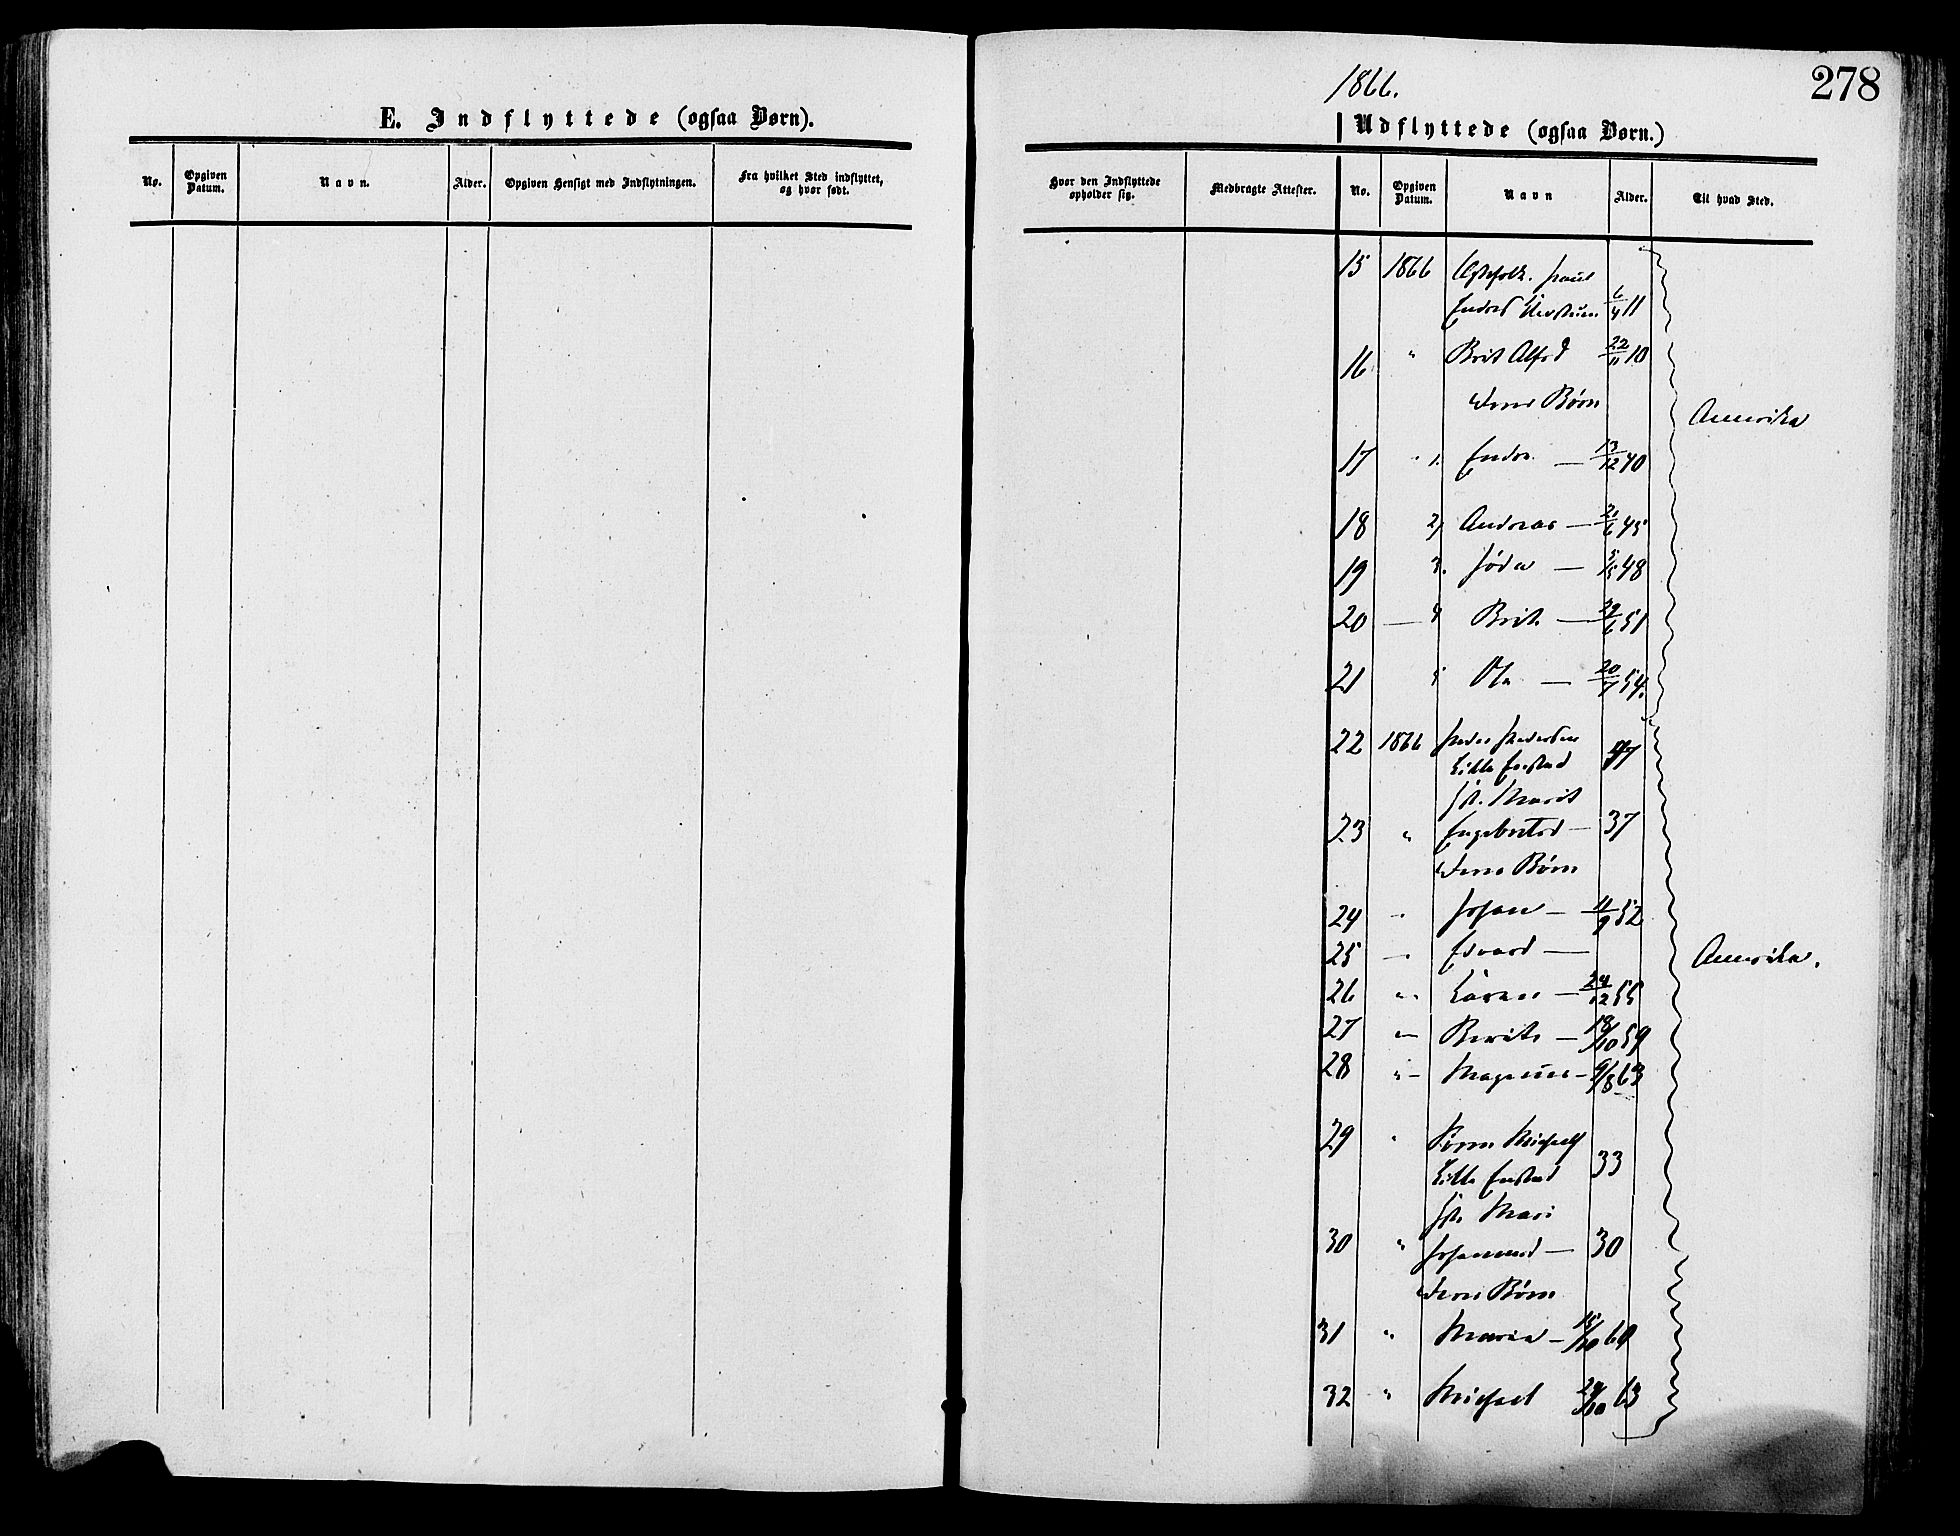 E. Indflyttede (ogsaa Børn).
No.
Opgiven Datum.
Navn.
Alder.
Opgiven Hensigt med Indflytningen.
Fra hvilket Sted indflyttet, og hvor født.
1866.
278
Udflyttede (ogsaa Børn.)
Hvor den Indflyttede opholder sig.
Medbragte Attester.
No.
Opgiven Datum.
Navn
Alder.
Til hvad Sted.
15 1866
Endres 6/4 11
16 " Brit Alfsd 22/11 10
Deres Børn
Amerika
17 " 1. Endre — 13/12 40
18 2) Andreas — 21/6 45
19 3. — 48
20 — 4 Brit — 29/6 51
21 5 Ola — 20/7 54.
22 1866 Peder Pedersen
Lille Enstad 47
H. Marit
23 " Engebretsd — 37
Deres Børn
24 " Johan — 11/9 52
25 " Edvard —
Amerika.
26 " — 24/12 55
27 " Berite — 19/10 59
28 " Magnus — 9/8 63
29 " Søren Michaels
Lille Enstad 33
H. Mari
30 " Johannesd — 30
Deres Børn
31 " Maria — 15/10 60
32 " Michael 29/10 63